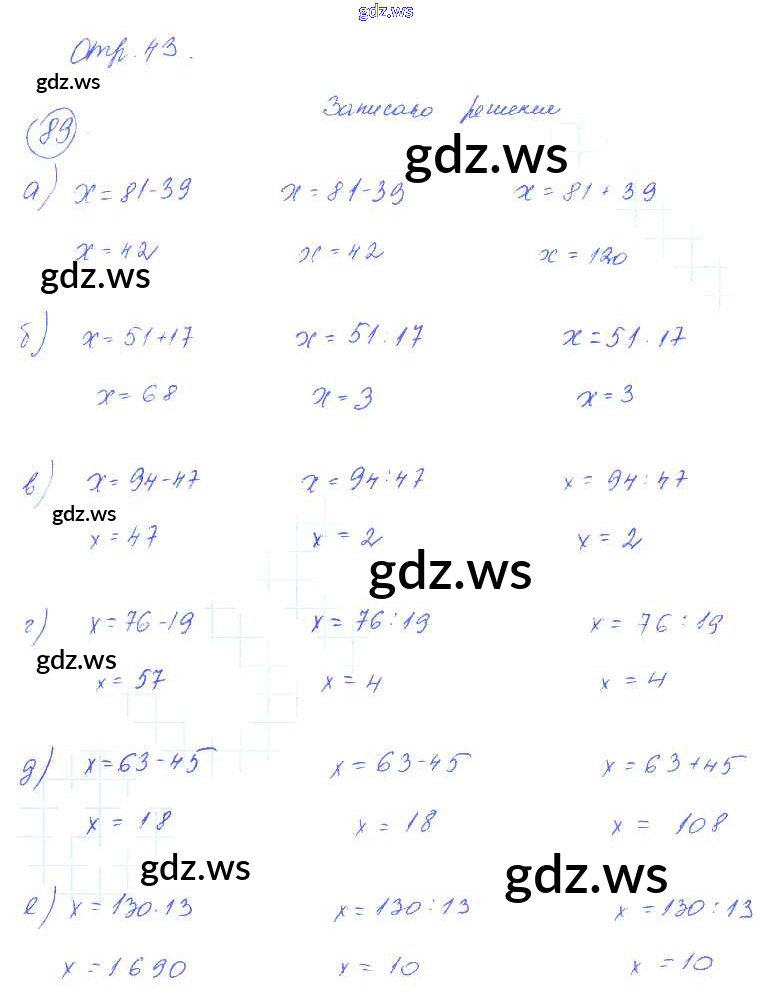 gdz.ws
Стр. 43.
gdz.ws
Записано решение
89
gdz.ws
а) x = 81-39 x = 81-39 x = 81 + 39
x = 42 x = 42 x = 120
gdz.ws
б) x = 51+17 x = 51:17 x = 51:17
x = 68 x = 3 x = 3
в) x = 94-47 x = 94:47 x = 94:47
gdz.ws
x = 47 x = 2 x = 2
gdz.ws
г) x = 76-19 x = 76:19 x = 76:19
gdz.ws
x = 57 x = 4 x = 4
д) x = 63-45 x = 63-45 x = 63+45
x = 18 x = 18 x = 108
gdz.ws gdz.ws
е) x = 130·13 x = 130:13 x = 130:13
x = 1690 x = 10 x = 10